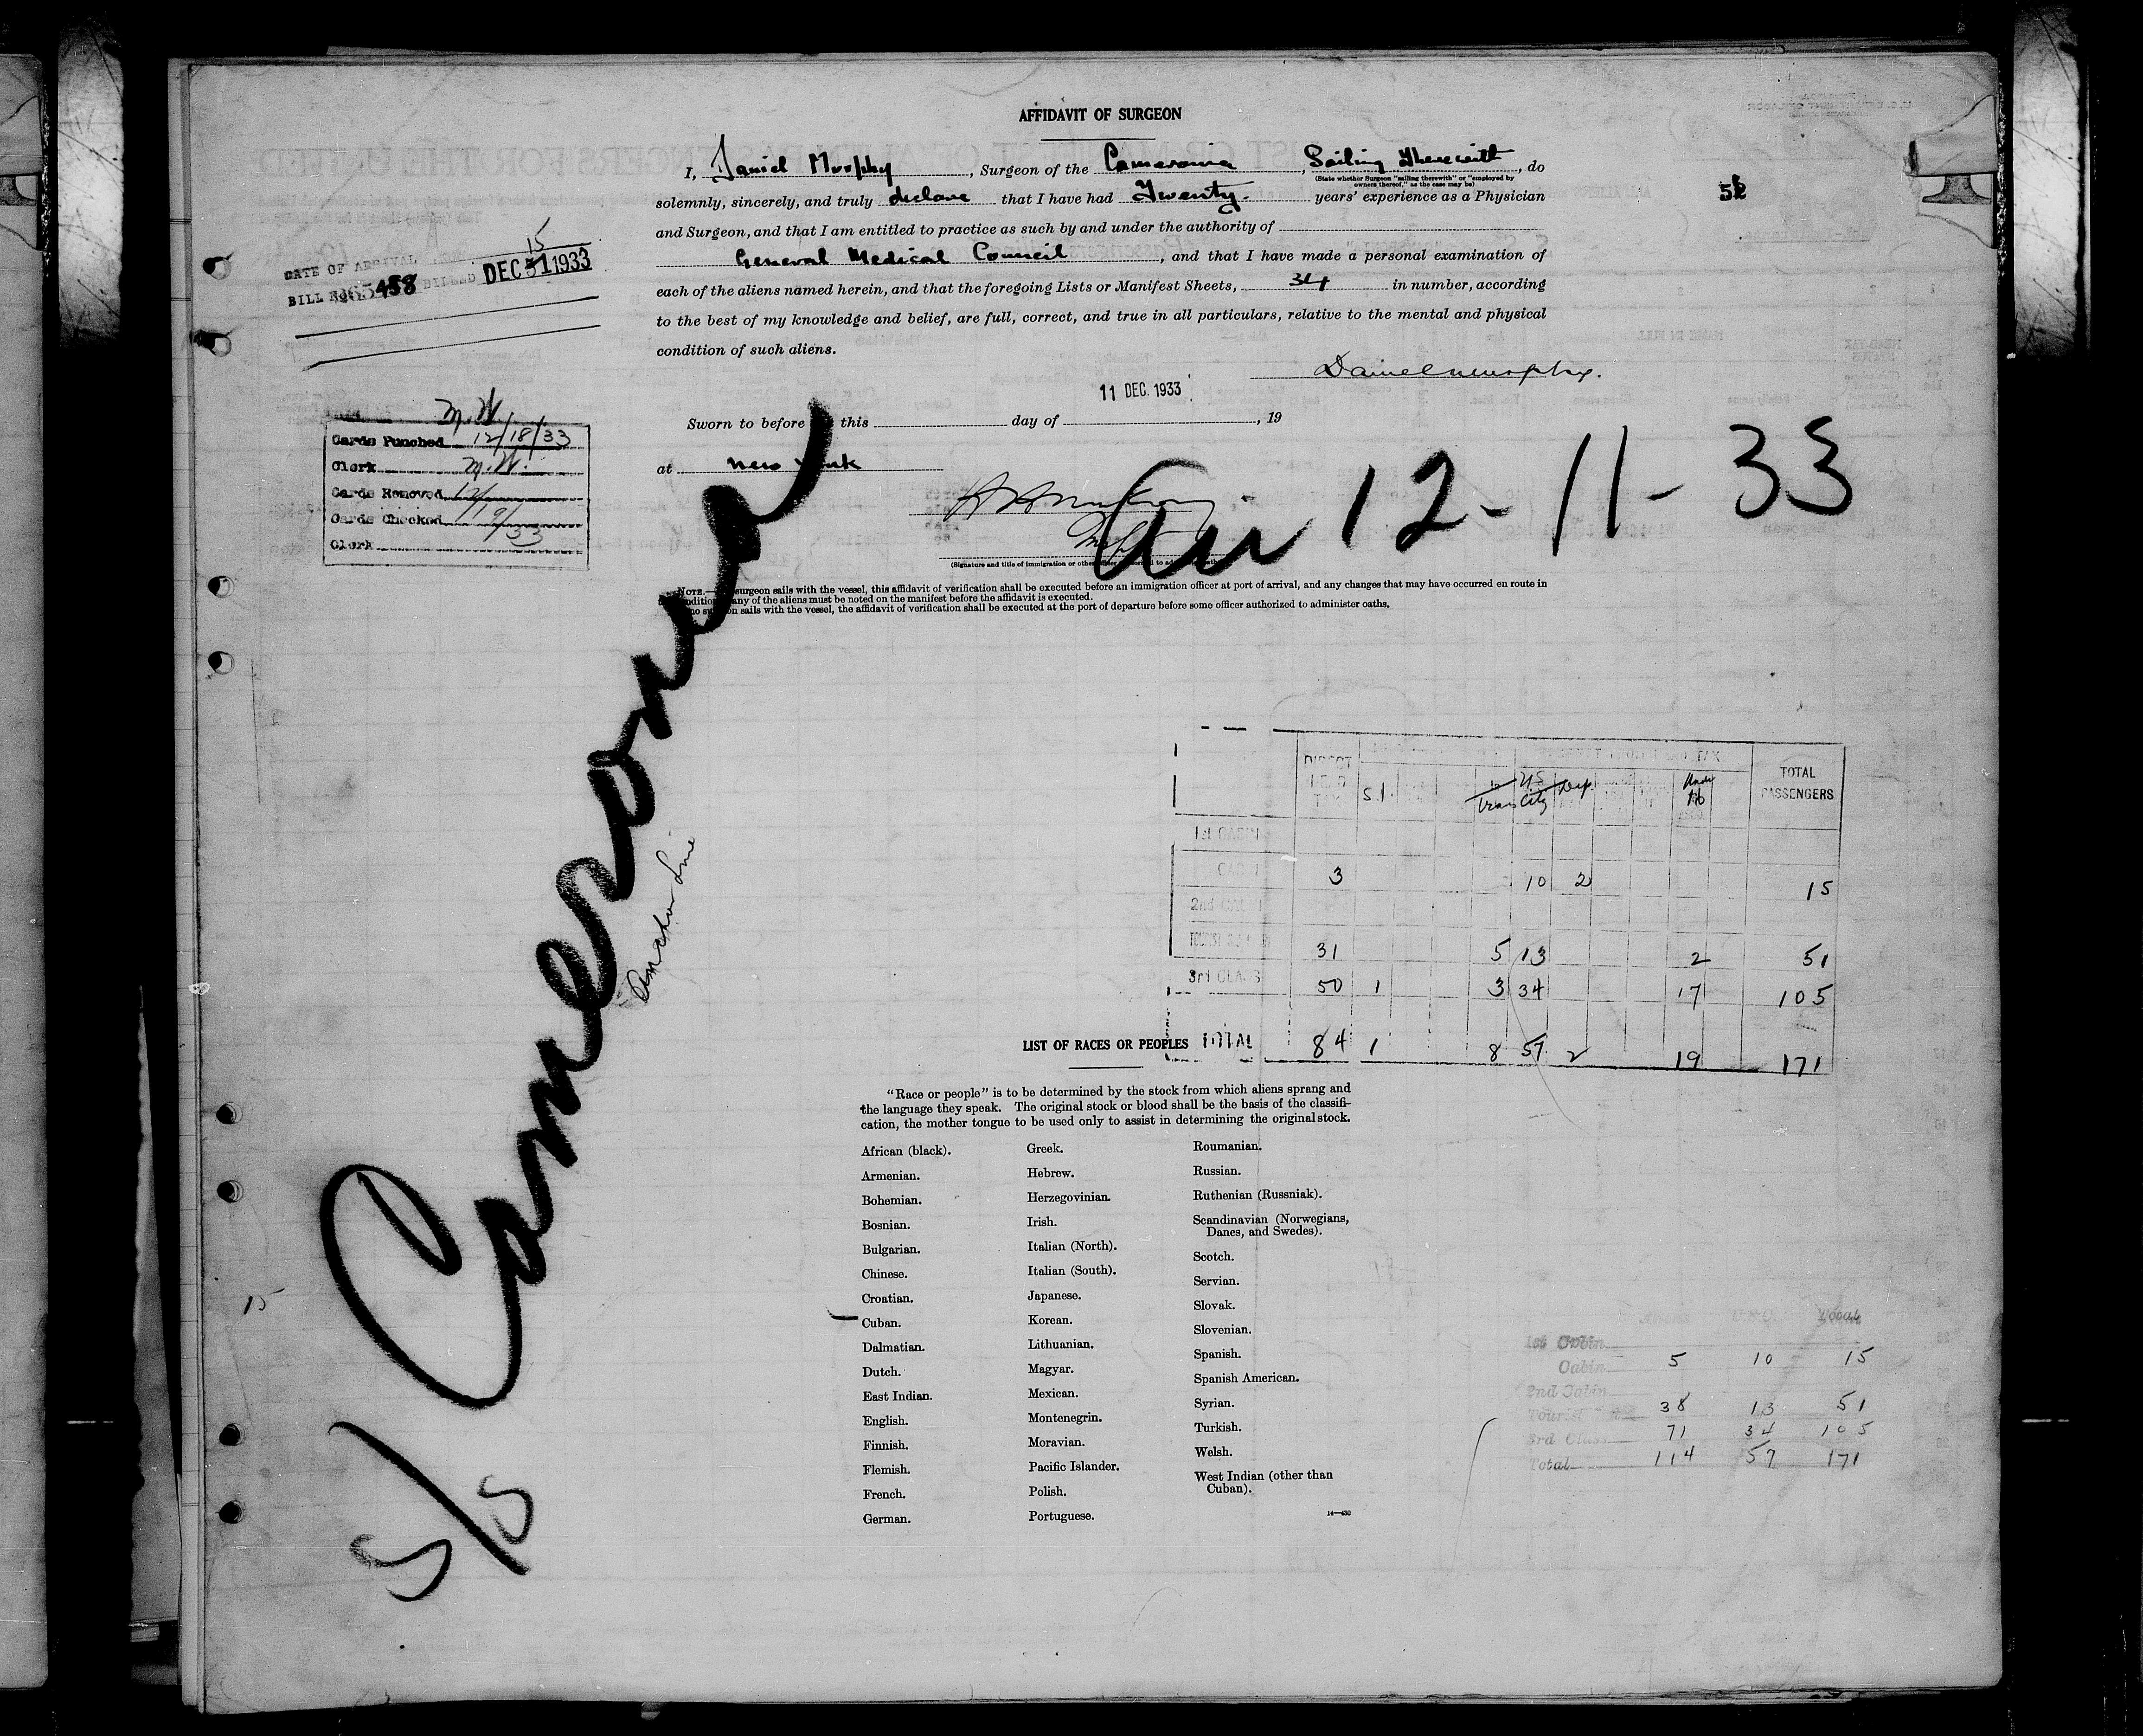 AFFIDAVIT OF SURGEON
I, Daniel Murphy, Surgeon of the Cameronia, Sailing Therewith, do
(State whether Surgeon "sailing therewith" or "employed by
owners thereof," as the case may be)
52
solemnly, sincerely, and truly declare that I have had Twenty years' experience as a Physician
and Surgeon, and that I am entitled to practice as such by and under the authority of
General Medical Council, and that I have made a personal examination of
each of the aliens named herein, and that the foregoing Lists or Manifest Sheets, 34 in number, according
to the best of my knowledge and belief, are full, correct, and true in all particulars, relative to the mental and physical
condition of such aliens.
Daniel Murphy.
11 DEC. 1933
Sworn to before this day of , 19
at New York
(Signature and title of immigration or other
NOTE.— surgeon sails with the vessel, this affidavit of verification shall be executed before an immigration officer at port of arrival, and any changes that may have occurred en route in
condition any of the aliens must be noted on the manifest before the affidavit is executed.
no surgeon sails with the vessel, the affidavit of verification shall be executed at the port of departure before some officer authorized to administer oaths.
15
DATE OF ARRIVAL
BILL No 65458 BILLED DEC 31 1933
M.W.
Cards Punched 12/18/33
Clerk M.W.
Cards Removed 12/
Cards Checked 19/33
Clerk
Arr 12-11-33
S/S Cameronia
Anchor Line
15
DIRECT S.I. in Trans US City Dep. Under 16 TOTAL PASSENGERS
1st CABIN
CABIN 3 10 2 15
2nd CABIN
TOURIST 31 5 13 2 51
3rd CLASS 50 1 3 34 17 105
TOTAL 84 1 8 57 2 19 171
LIST OF RACES OR PEOPLES
"Race or people" is to be determined by the stock from which aliens sprang and
the language they speak. The original stock or blood shall be the basis of the classifi-
cation, the mother tongue to be used only to assist in determining the original stock.
African (black).
Armenian.
Bohemian.
Bosnian.
Bulgarian.
Chinese.
Croatian.
Cuban.
Dalmatian.
Dutch.
East Indian.
English.
Finnish.
Flemish.
French.
German.
Greek.
Hebrew.
Herzegovinian.
Irish.
Italian (North).
Italian (South).
Japanese.
Korean.
Lithuanian.
Magyar.
Mexican.
Montenegrin.
Moravian.
Pacific Islander.
Polish.
Portuguese.
Roumanian.
Russian.
Ruthenian (Russniak).
Scandinavian (Norwegians,
Danes, and Swedes).
Scotch.
Servian.
Slovak.
Slovenian.
Spanish.
Spanish American.
Syrian.
Turkish.
Welsh.
West Indian (other than
Cuban).
14—430
Total
1st Cabin
Cabin 5 10 15
2nd Cabin
Tourist 38 13 51
3rd Class 71 34 105
Total 114 57 171